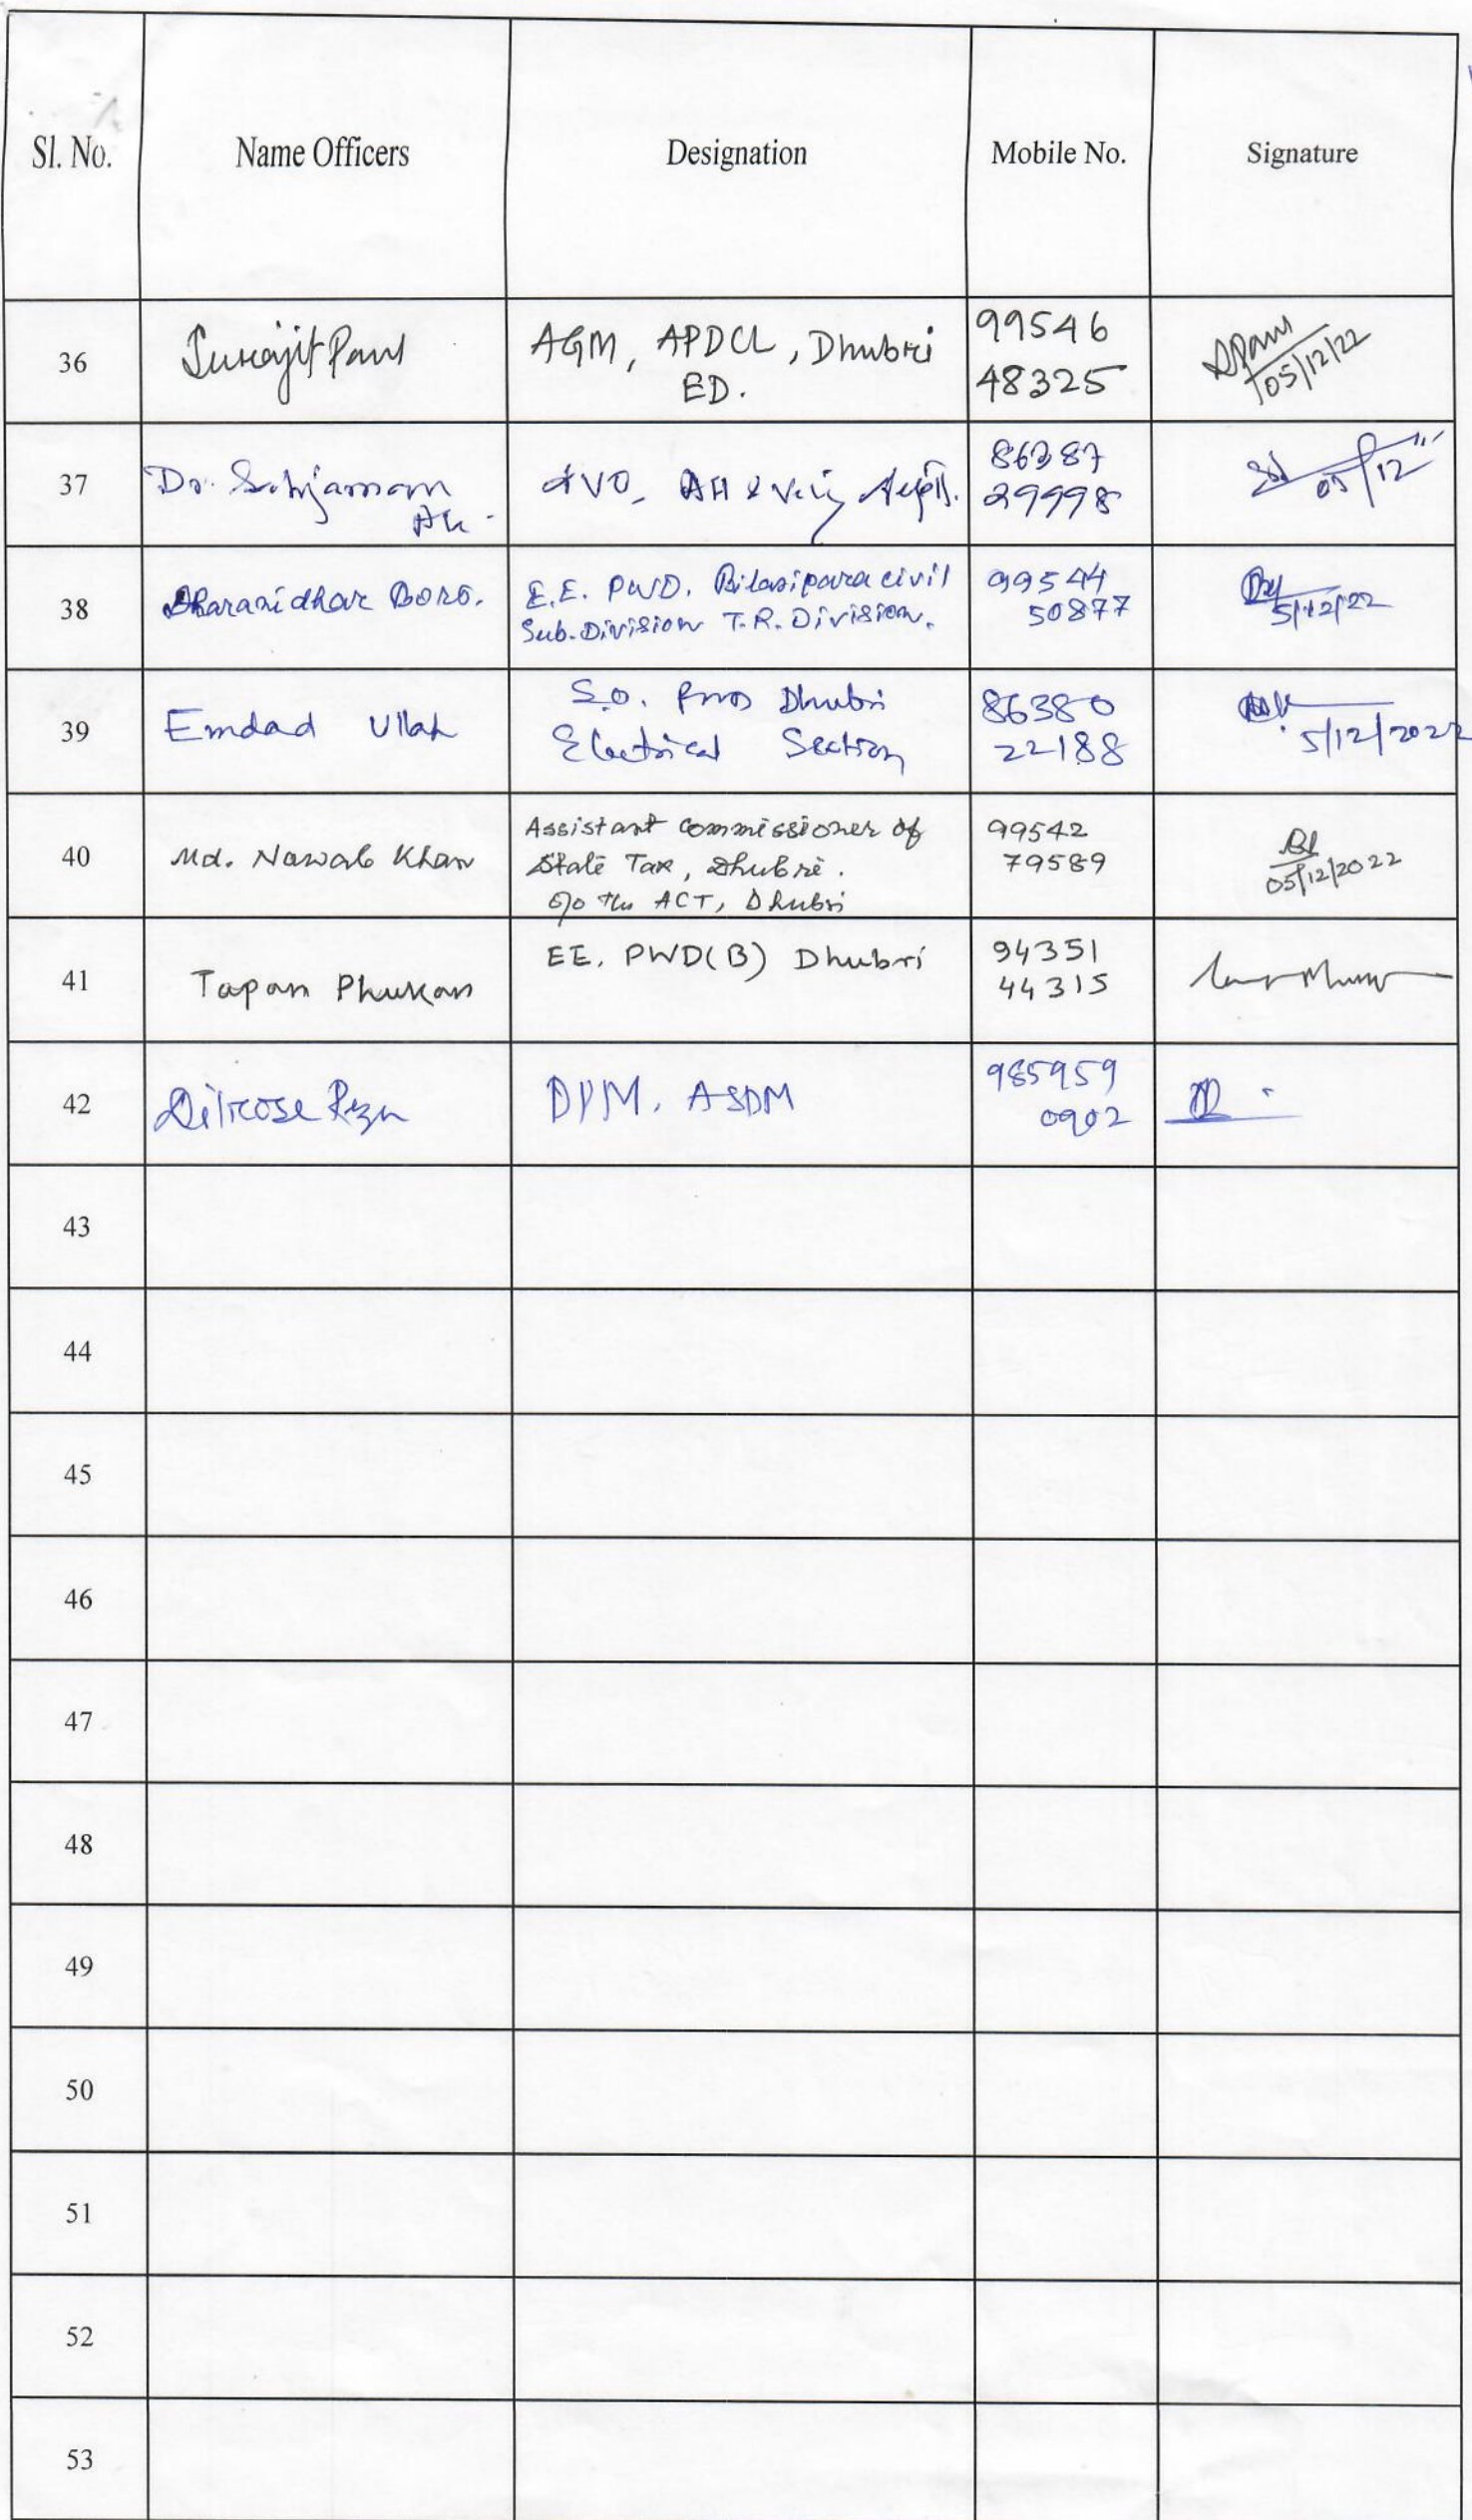 Sl. No. Name Officers Designation Mobile No. Signature
36 Surajit Paul AGM, APDCL, Dhubri 99546
ED. 48325
05/12/22
37 Dr. AH & Vety Deptt. 86387
29998
05/12
38 Dharanidhar Boro. E.E. PWD. Bilasipara civil 99544
Sub-Division T.R. Division. 50877
5/12/22
39 Emdad Ullah S.O. PWD Dhubri 86380
Electrical Section 22188
5/12/2022
40 Md. Nawab Khan Assistant Commissioner of 99542
State Tax, Dhubri. 79589
O/o the ACT, Dhubri
05/12/2022
41 Tapan Phukan EE. PWD(B) Dhubri 94351
44315
42 Dilrose DPM, ASDM 985959
0902
43
44
45
46
47
48
49
50
51
52
53